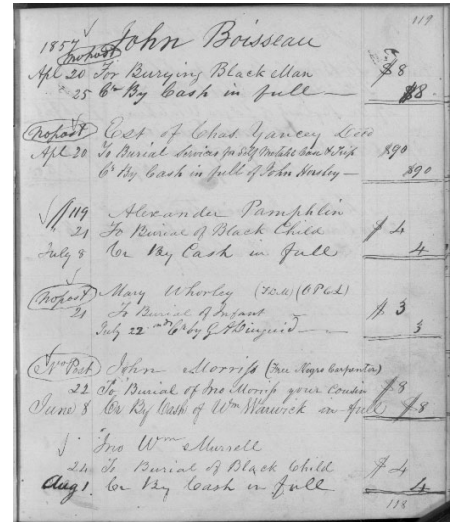 119
1857 John Boisseau
no post
Apl 20 For Burying Black Man $8
" 25 Cr By Cash in full $8
no post Est of Chas. Yancey Decd
Apl 20 To Burial Services for Self Metalic Case & Trip $90
Cr By Cash in full of John Hersley $90
119 Alexander Pamphlin
21 To Burial of Black Child $4
July 8 Cr By Cash in full 4
no post Mary Whorley
21 To Burial of Infant $3
July 22nd Cr by G A Diuguid 3
No Post John Morriss (Free Negro Carpenter)
22 To Burial of Jno Morriss your Cousin $8
June 8 Cr By Cash of Wm Warwick in full $8
Jno Wm Murrell
24 To Burial of Black Child $4
Aug 1. Cr By Cash in full 4
118